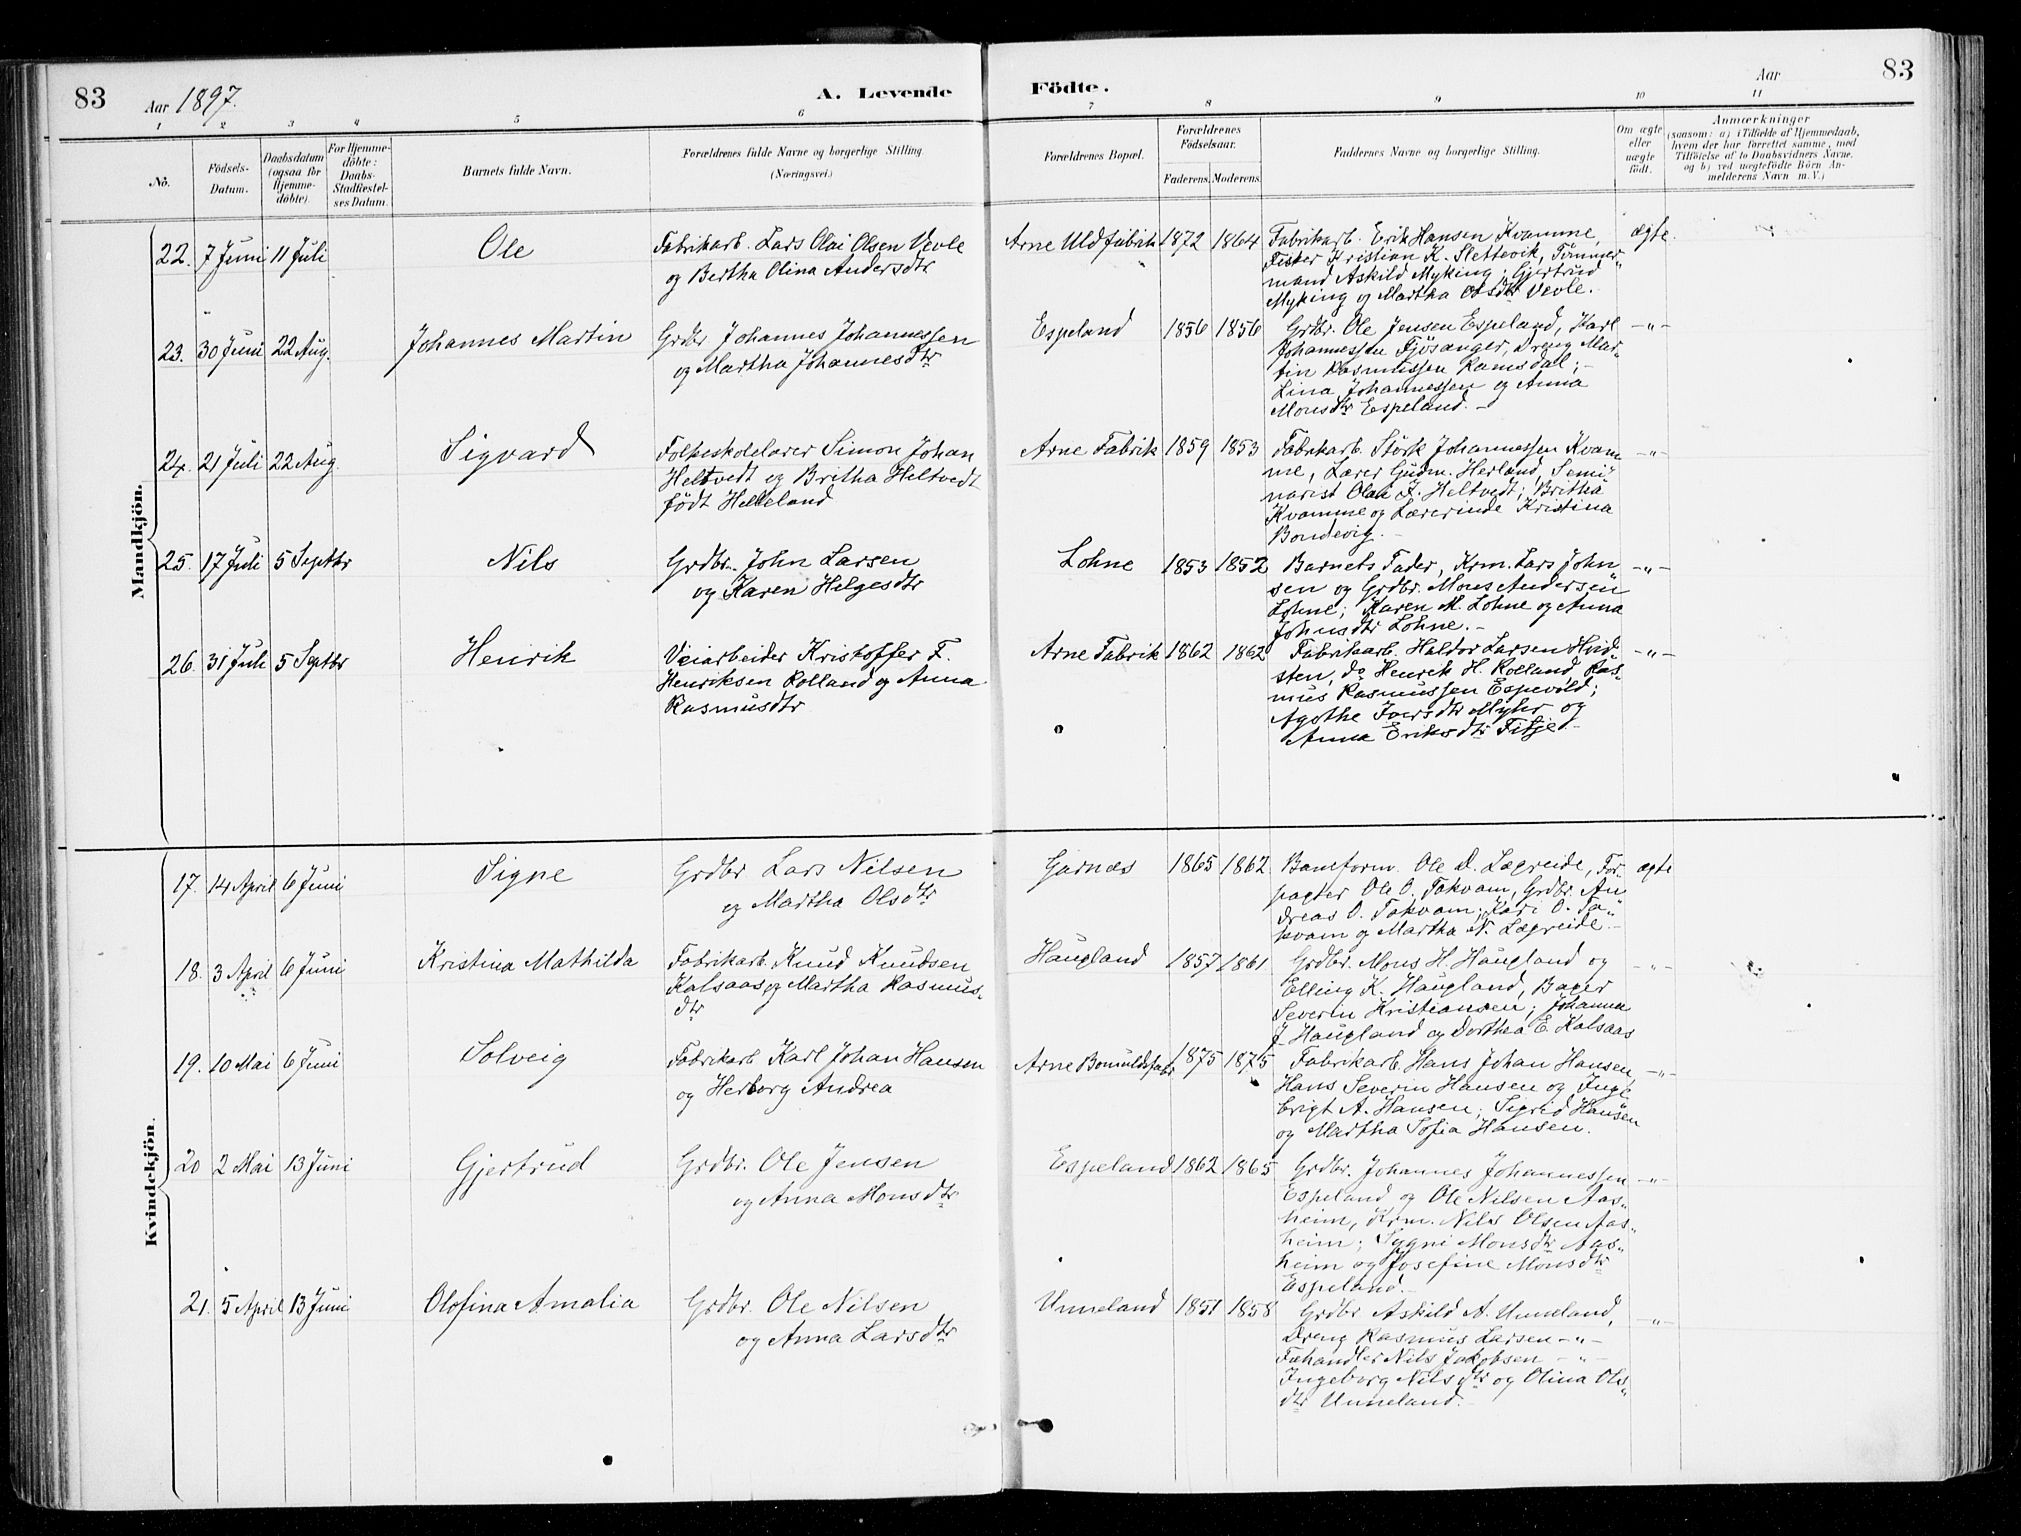 83
Aar 1897.
A. Levende
Födte.
Aar
83
1 2 3 4 5 6 7 8 9 10 11
No.
Födsels-
Datum.
Daabsdatum
(ogsaa for
Hjemme-
döbte).
For Hjemme-
döbte:
Daabs-
Stadfæstel-
ses Datum.
Barnets fulde Navn.
Forældrenes fulde Navne og borgerlige Stilling.
(Næringsvei.)
Forældrenes Bopæl.
Forældrenes
Födselsaar.
Faderens. Moderens.
Faddernes Navne og borgerlige Stilling.
Om ægte
eller
uægte
födt.
Anmærkninger
(saasom: a) i Tilfælde af Hjemmedaab,
hvem der har forrettet samme, med
Tilföielse af to Daabsvidners Navne.
og b) ved uægtefödte Börn An-
melderens Navn m. V.)
Mandkjön.
22. 7 Juni 11 Juli
Ole
Fabrikarb. Lars Olai Olsen Vevle
og Bertha Olina Andersdtr
Arne Uldfabrik 1872 1864
Fabrikarb. Erik Hansen Kvamme,
Fisker Kristian K. Slettevik, Tömmer-
mand Askild Myking; Gjertrud
Myking og Martha Olsdtr Vevle.
ægte.
23. 30 Juni 22 Aug.
Johannes Martin
Grdbr Johannes Johannessen
og Martha Johannesdtr
Espeland 1856 1856
Grdbr. Ole Jensen Espeland, Karl
Johannessen Fjösanger, Dreng Mar-
tin Rasmussen Ramsdal;
Lina Johannessen og Anna
Monsdtr Espeland.
-"-
24. 21 Juli 22 Aug.
Sigvard
Folkeskolelærer Simon Johan
Heltvedt og Britha Heltvedt
födt Helleland
Arne Fabrik 1859 1853
Fabrikarb. Störk Johannessen Kvam-
me, Lærer Gudm. Herland, Semi-
narist Olai J. Heltvedt; Britha
Kvamme og Lærerinde Kristina
Bondevig.
-"-
25. 17 Juli 5 Septbr
Nils
Grdbr. John Larsen
og Karen Helgesdtr
Lohne 1853 1852
Barnets Fader, Krm. Lars John-
sen og Grdbr. Mons Andersen
Lohne; Karen M. Lohne og Anna
Johnsdtr Lohne.
-"-
26. 31 Juli 5 Septbr
Henrik
Veiarbeider Kristoffer F.
Henriksen Rolland og Anna
Rasmusdtr
Arne Fabrik 1862 1862
Fabrikarb. Haldor Larsen Hvid-
sten, do Henrik H. Rolland, Ras-
mus Rasmussen Espevold;
Agathe Iversdtr Myhr og
Anna Eriksdtr Fitje.
-"-
Kvindekjön.
17. 14 April 6 Juni
Signe
Grdbr Lars Nilsen
og Martha Olsdtr
Garnæs 1865 1862
Baneform. Ole D. Lægreide, For-
pagter Ole O. Takvam, Grdbr. An-
dreas O. Takvam; Kari O. Ta-
kvam og Martha N. Lægreide.
ægte
18. 3 April 6 Juni
Kristina Mathilda
Fabrikarb. Knud Knudsen
Kalsaas og Martha Rasmus-
dtr
Haugland 1857 1861
Grdbr. Mons H. Haugland og
Elling K. Haugland, Bager
Severin Kristiansen; Johanna
J. Haugland og Dorthea E. Kalsaas
-"-
19. 10 Mai 6 Juni
Solveig
Fabrikarb. Karl Johan Hansen
og Herborg Andrea
Arne Bomuldsfabr 1875 1875
Fabrikarb. Hans Johan Hansen,
Hans Severin Hansen og Inge-
brigt A. Hansen; Sigrid Hansen
og Martha Sofia Hansen.
-"-
20 2 Mai 13 Juni
Gjertrud
Grdbr. Ole Jensen
og Anna Monsdtr
Espeland 1862 1865
Grdbr. Johannes Johannessen
Espeland og Ole Nilsen Aas-
heim, Krm. Nils Olsen Aas-
heim; Sygni Monsdtr Aas-
heim og Josefine Monsdtr
Espeland.
-"-
21. 5 April 13 Juni
Olofina Amalia
Grdbr. Ole Nilsen
og Anna Larsdtr
Unneland 1851 1858
Grdbr Askild A. Unneland,
Dreng Rasmus Larsen -"-
Fæhandler Nils Jakobsen -"-
Ingeborg Nilsdtr og Olina Ols-
dtr Unneland.
-"-